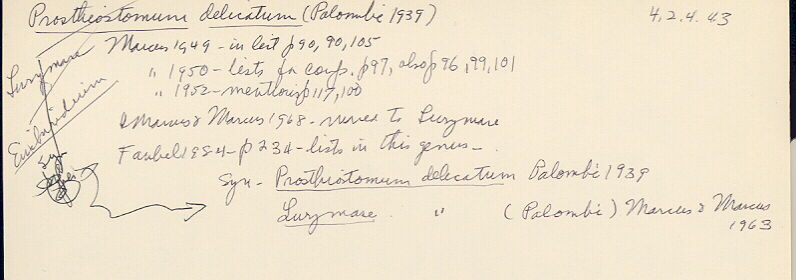 Prostheostomum delicatum (Palombi 1939) 4.2.4.43
Marcus 1949 - in list p90, 90, 105
" 1950 - lists for comp. p97, also p96, 99, 101
" 1952 - mentions p117, 100
Marcus & Marcus 1968 - moved to Lurymare
Faubel 1984 - p 234 - lists in this genus -
Syn - Prostheostomum delicatum Palombi 1939
Lurymare " (Palombi) Marcus & Marcus
1963
Lurymare
Enchiridium
Syn